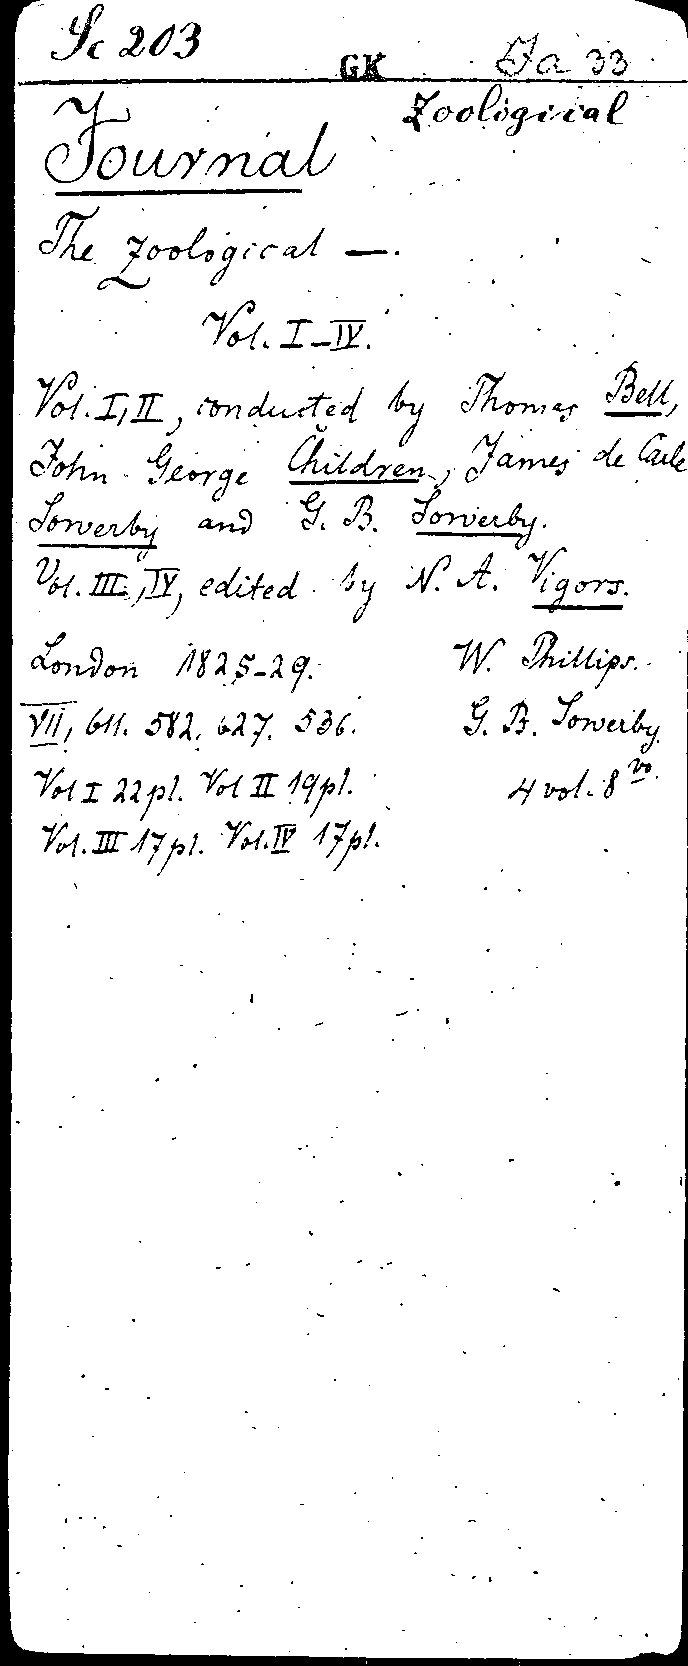 Sc 203 GK Ja 33
Zoological
Journal
The Zoological —.
Vol. I–IV.
Vol. I, II, conducted by Thomas Bell,
John George Children, James de Carle
Sowerby and G. B. Sowerby.
Vol. III, IV, edited by N. A. Vigors.
London 1825–29. W. Phillips.
VII, 611. 582. 627. 536. G. B. Sowerby
Vol I 22 pl. Vol II 19 pl. 4 vol. 8vo.
Vol. III 17 pl. Vol. IV 17 pl.